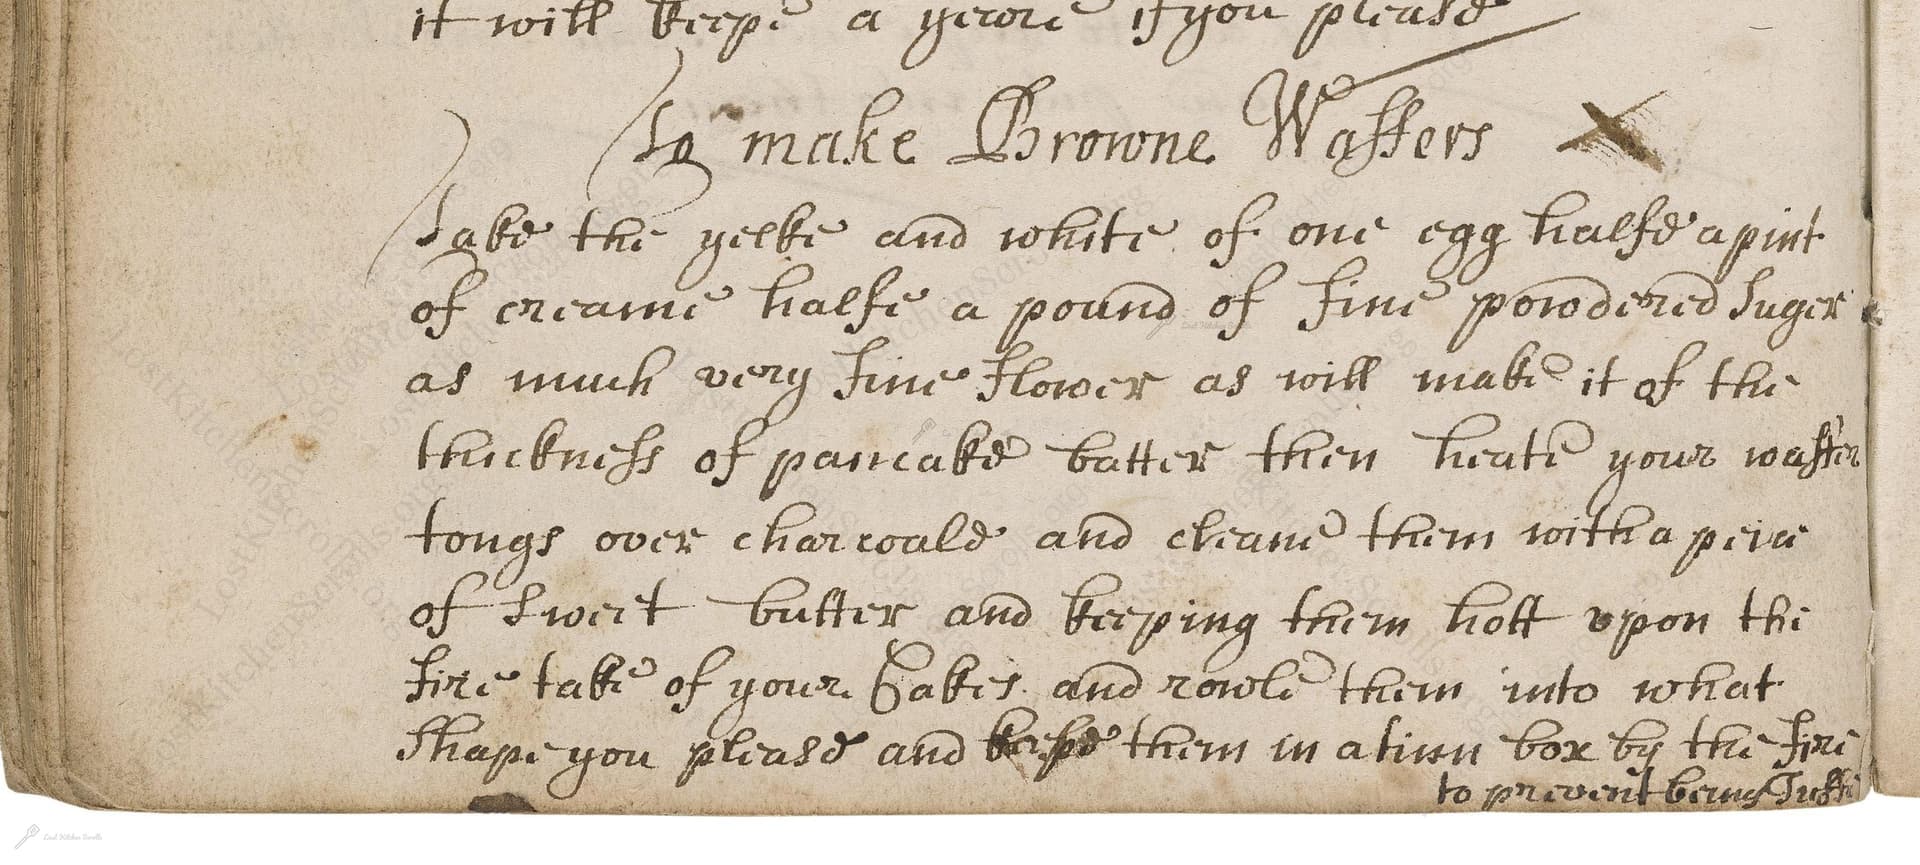 it will keepe a yeore if you please
To make Browne Waffers
Take the yelke and white of one egg halfe a pint
of creame halfe a pound of fine powdered Suger
as much very fine flower as will make it of the
thickness of pancake batter then heate your waffer
tongs over charcoale and cleane them with a peice
of Sweet butter and keeping them hott upon the
fire take of your Cakes and rowle them into what
Shape you please and keepe them in a tinn box by the fire
to prevent being
Lost Kitchen Scrolls